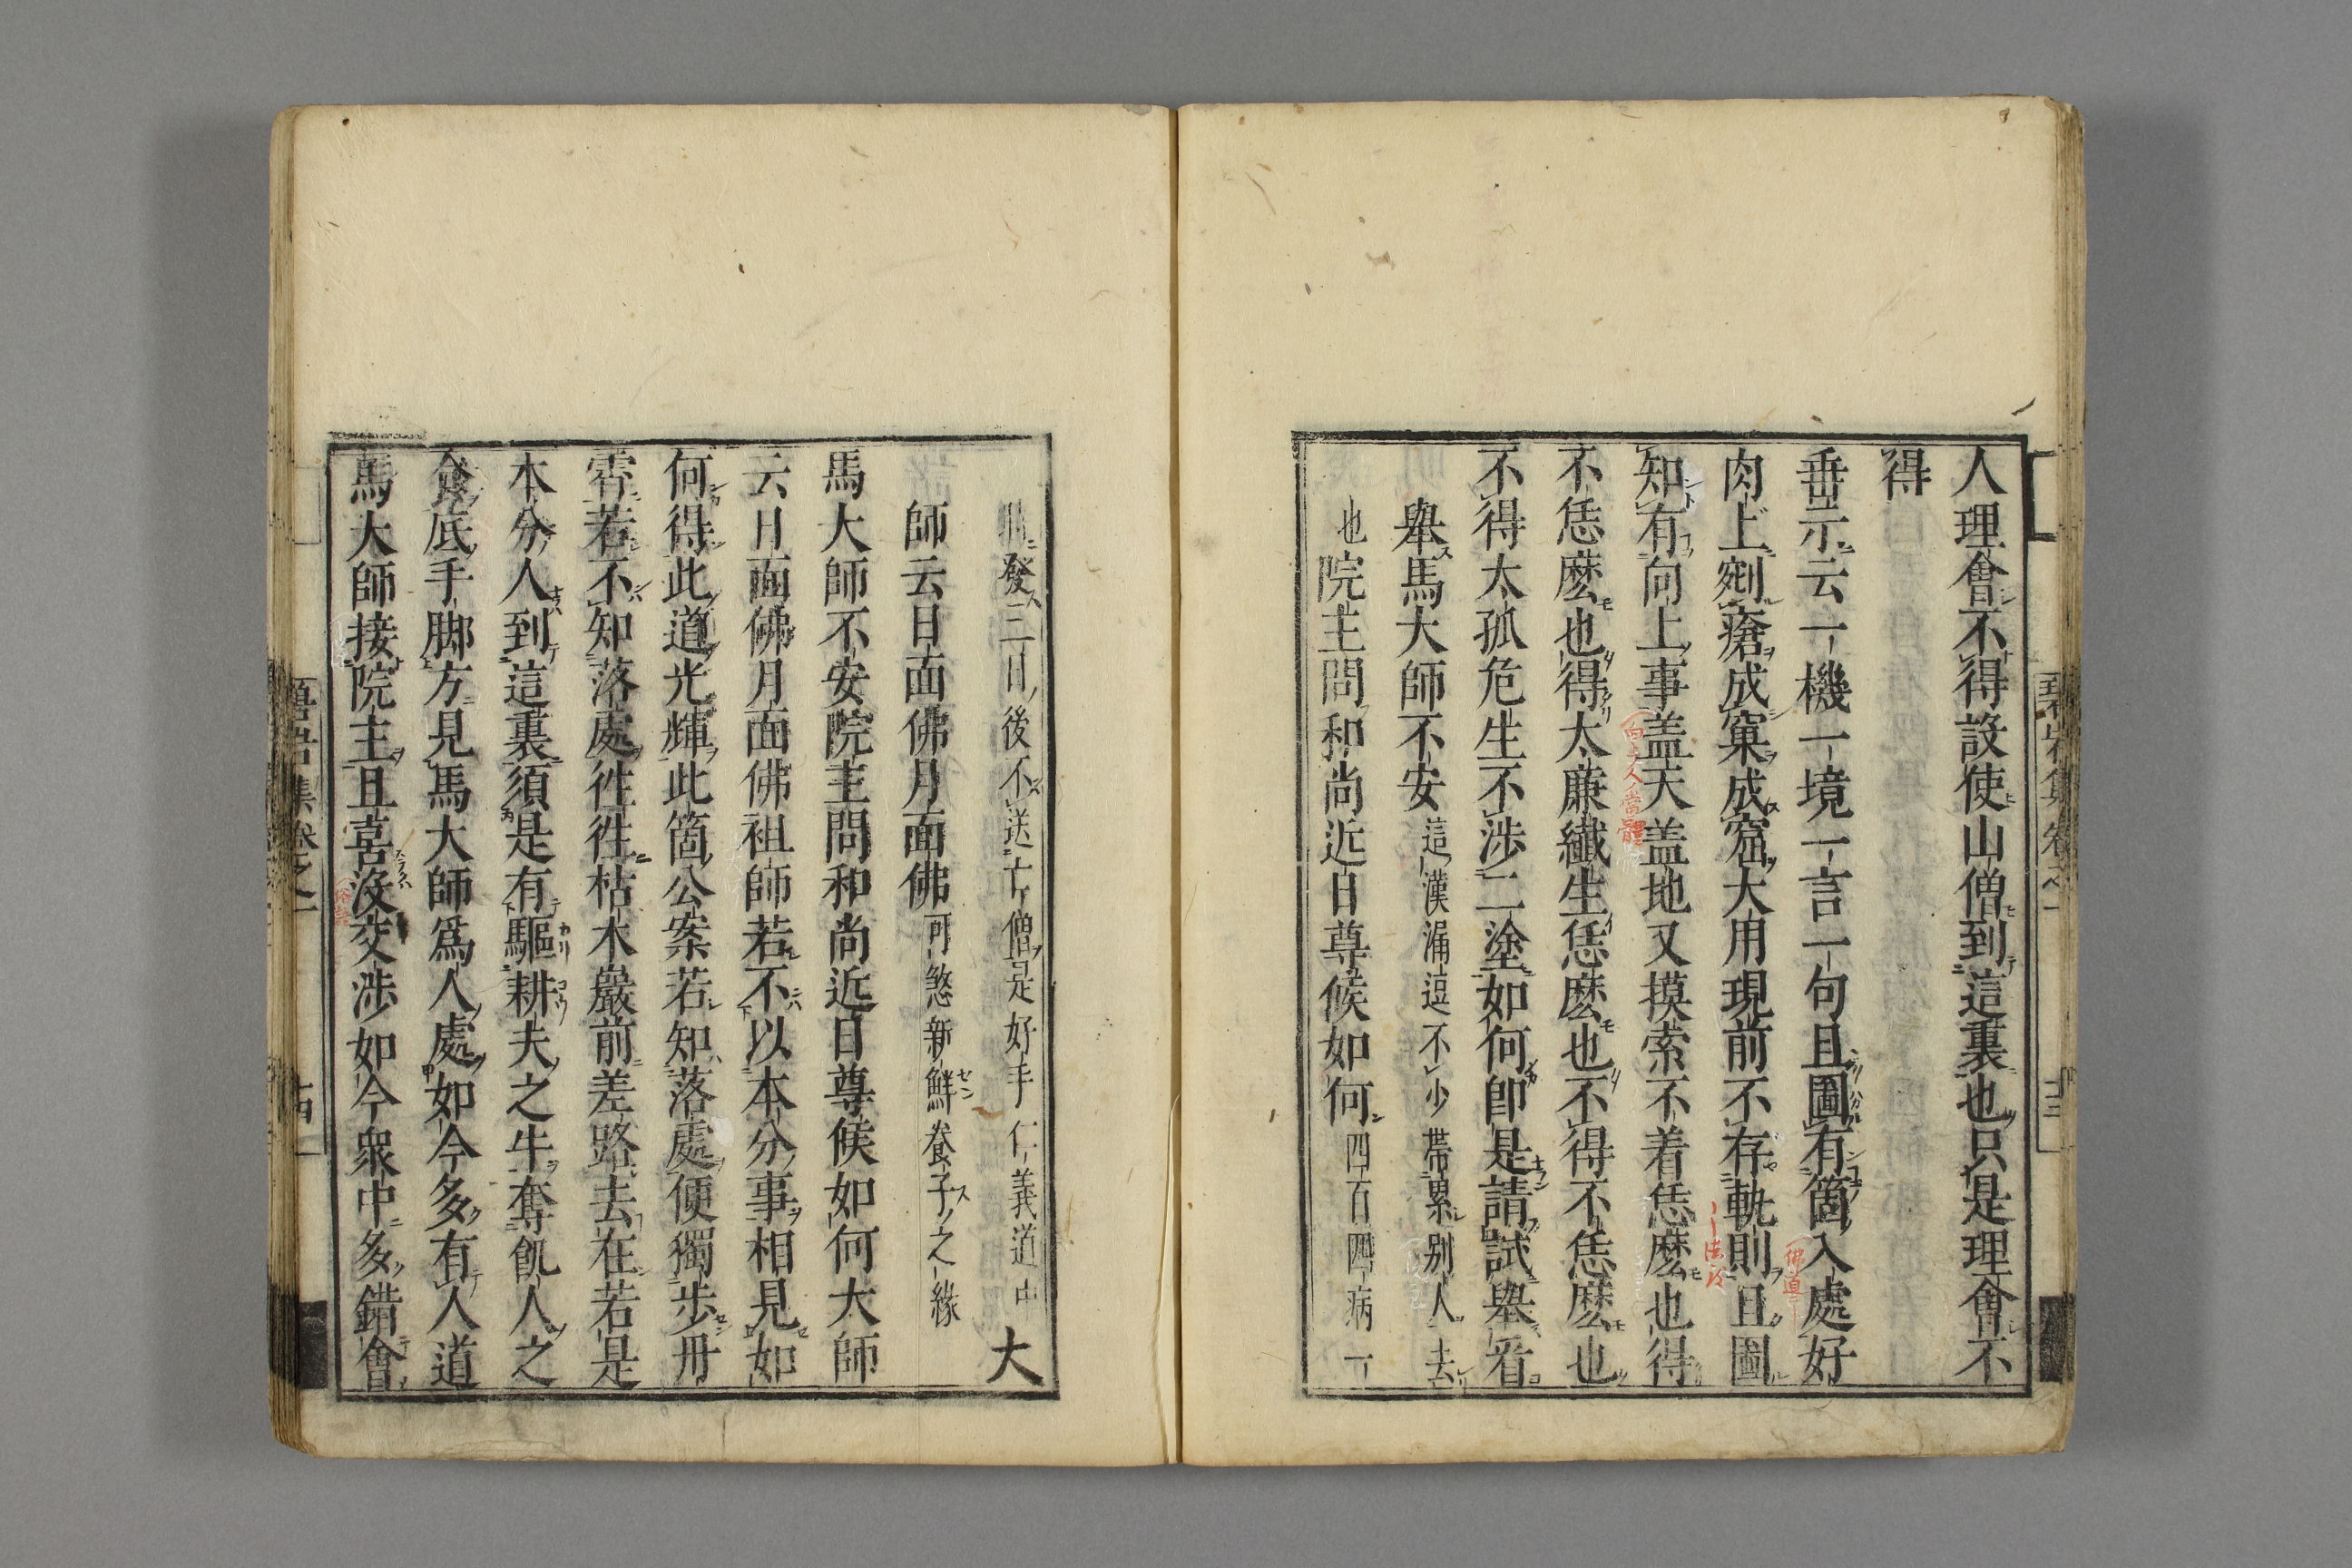 人理會不得設使山僧到這裏也只是理會不
得
垂示云一機一境一言一句且圖有箇入處好
肉上剜瘡成窠成窟大用現前不存軌則且圖
知有向上事盖天盖地又摸索不着恁麽也得
不恁麽也得太廉纖生恁麽也不得不恁麽也
不得太孤危生不涉二塗如何卽是請試舉看
舉馬大師不安這漢漏逗不少帶累別人去
也院主問和尚近日尊候如何四百四病一
時發三日後不送亡僧是好手仁義道中大
師云日面佛月面佛可煞新鮮養子之緣
馬大師不安院主問和尚近日尊候如何大師
云日面佛月面佛祖師若不以本分事相見如
何得此道光輝此箇公案若知落處便獨步丹
霄若不知落處徃徃枯木巖前差路去在若是
本分人到這裏須是有驅耕夫之牛奪飢人之
食底手脚方見馬大師爲人處如今多有人道
馬大師接院主且喜沒交涉如今衆中多錯會
碧岩集卷之一
十三
向上人當體
佛道
十四